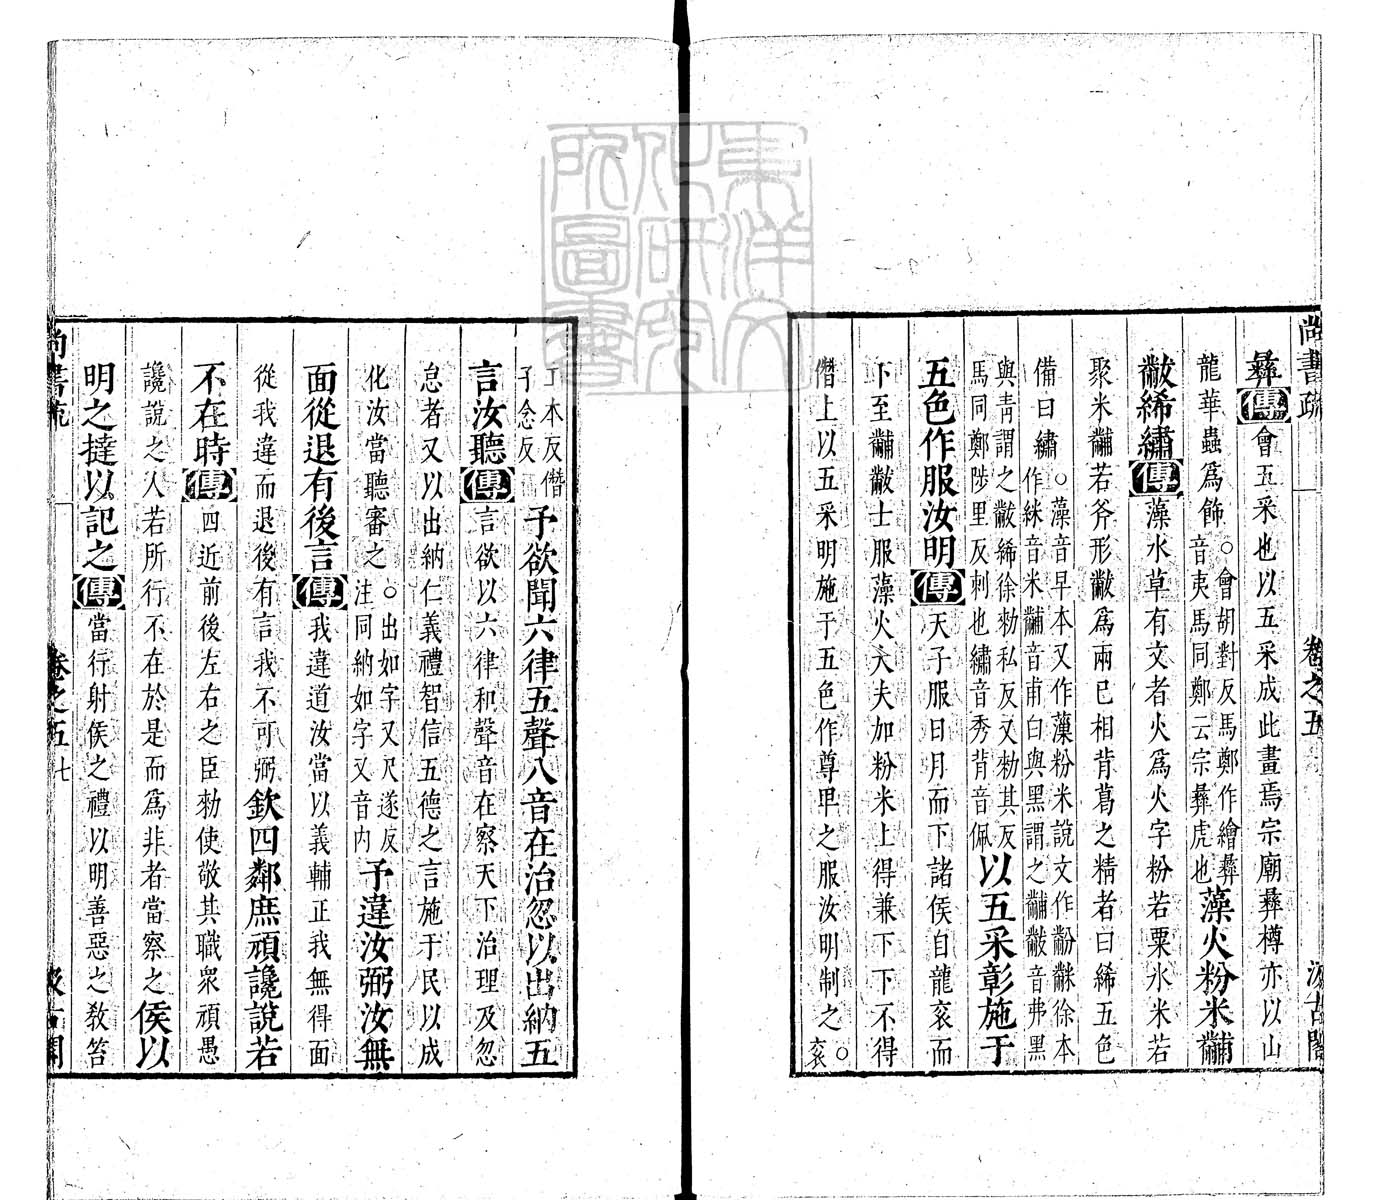 尚書疏 卷之五 汲古閣
彞傳會五采也以五采成此畫焉宗廟彞樽亦以山
龍華蟲爲飾○會胡對反馬鄭作繪彞音夷馬同鄭云宗彞虎也藻火粉米黼
黻絺繡傳藻水草有文者火爲火字粉若粟氷米若
聚米黼若斧形黻爲兩已相背葛之精者曰絺五色
備曰繡○藻音早本又作薻粉米說文作黺䋛徐本作絑音米黼音甫白與黑謂之黼黻音弗黑
與青謂之黻絺徐勑私反又勑其反馬同鄭陟里反刺也繡音秀背音佩以五采彰施于
五色作服汝明傳天子服日月而下諸侯自龍衮而
下至黼黻士服藻火大夫加粉米上得兼下下不得
僭上以五采明施于五色作尊卑之服汝明制之○衮
工本反僭子念反予欲聞六律五聲八音在治忽以出納五
言汝聽傳言欲以六律和聲音在察天下治理及忽
怠者又以出納仁義禮智信五德之言施于民以成
化汝當聽審之○出如字又尺遂反注同納如字又音内予違汝弼汝無
面從退有後言傳我違道汝當以義輔正我無得面
從我違而退後有言我不可弼欽四鄰庶頑讒說若
不在時傳四近前後左右之臣勑使敬其職衆頑愚
讒說之人若所行不在於是而爲非者當察之侯以
明之撻以記之傳當行射侯之禮以明善惡之教笞
尚書疏 卷之五 七 汲古閣
東洋文化研究所圖書